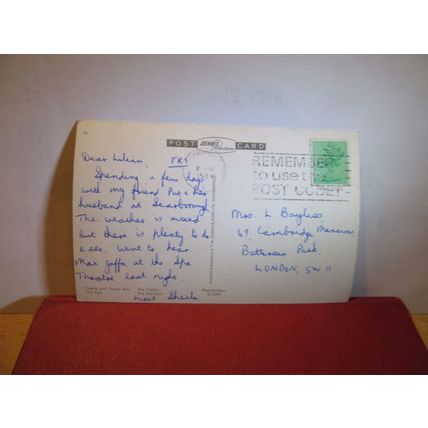 POST DENNIS CARD
REMEMBER
to use the
POST CODE
Dear Lilian, FRI
Spending a few days
with my friend Pat & her
husband at Scarborough
The weather is mixed
but there is plenty to do
& see. Went to hear
Max Jaffa at the Spa
Theatre last night.
Love Sheila
Mrs. L Bayliss
69 Cambridge Mansions
Battersea Park
LONDON, SW11
Castle and South Bay
The Spa
The Castle